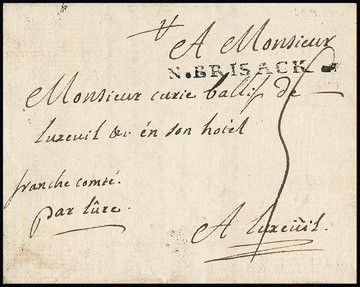 A Monsieur
N. BRISACK
Monsieur curie ballif de
luxeuil &c én son hotel
franche comté.
par lûre.
A luxeüil.